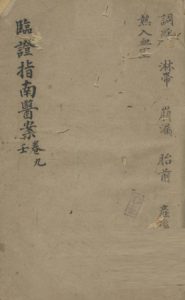 調經 淋帶 崩漏 胎前 產後
熱入血室
臨證指南醫案 卷九
壬